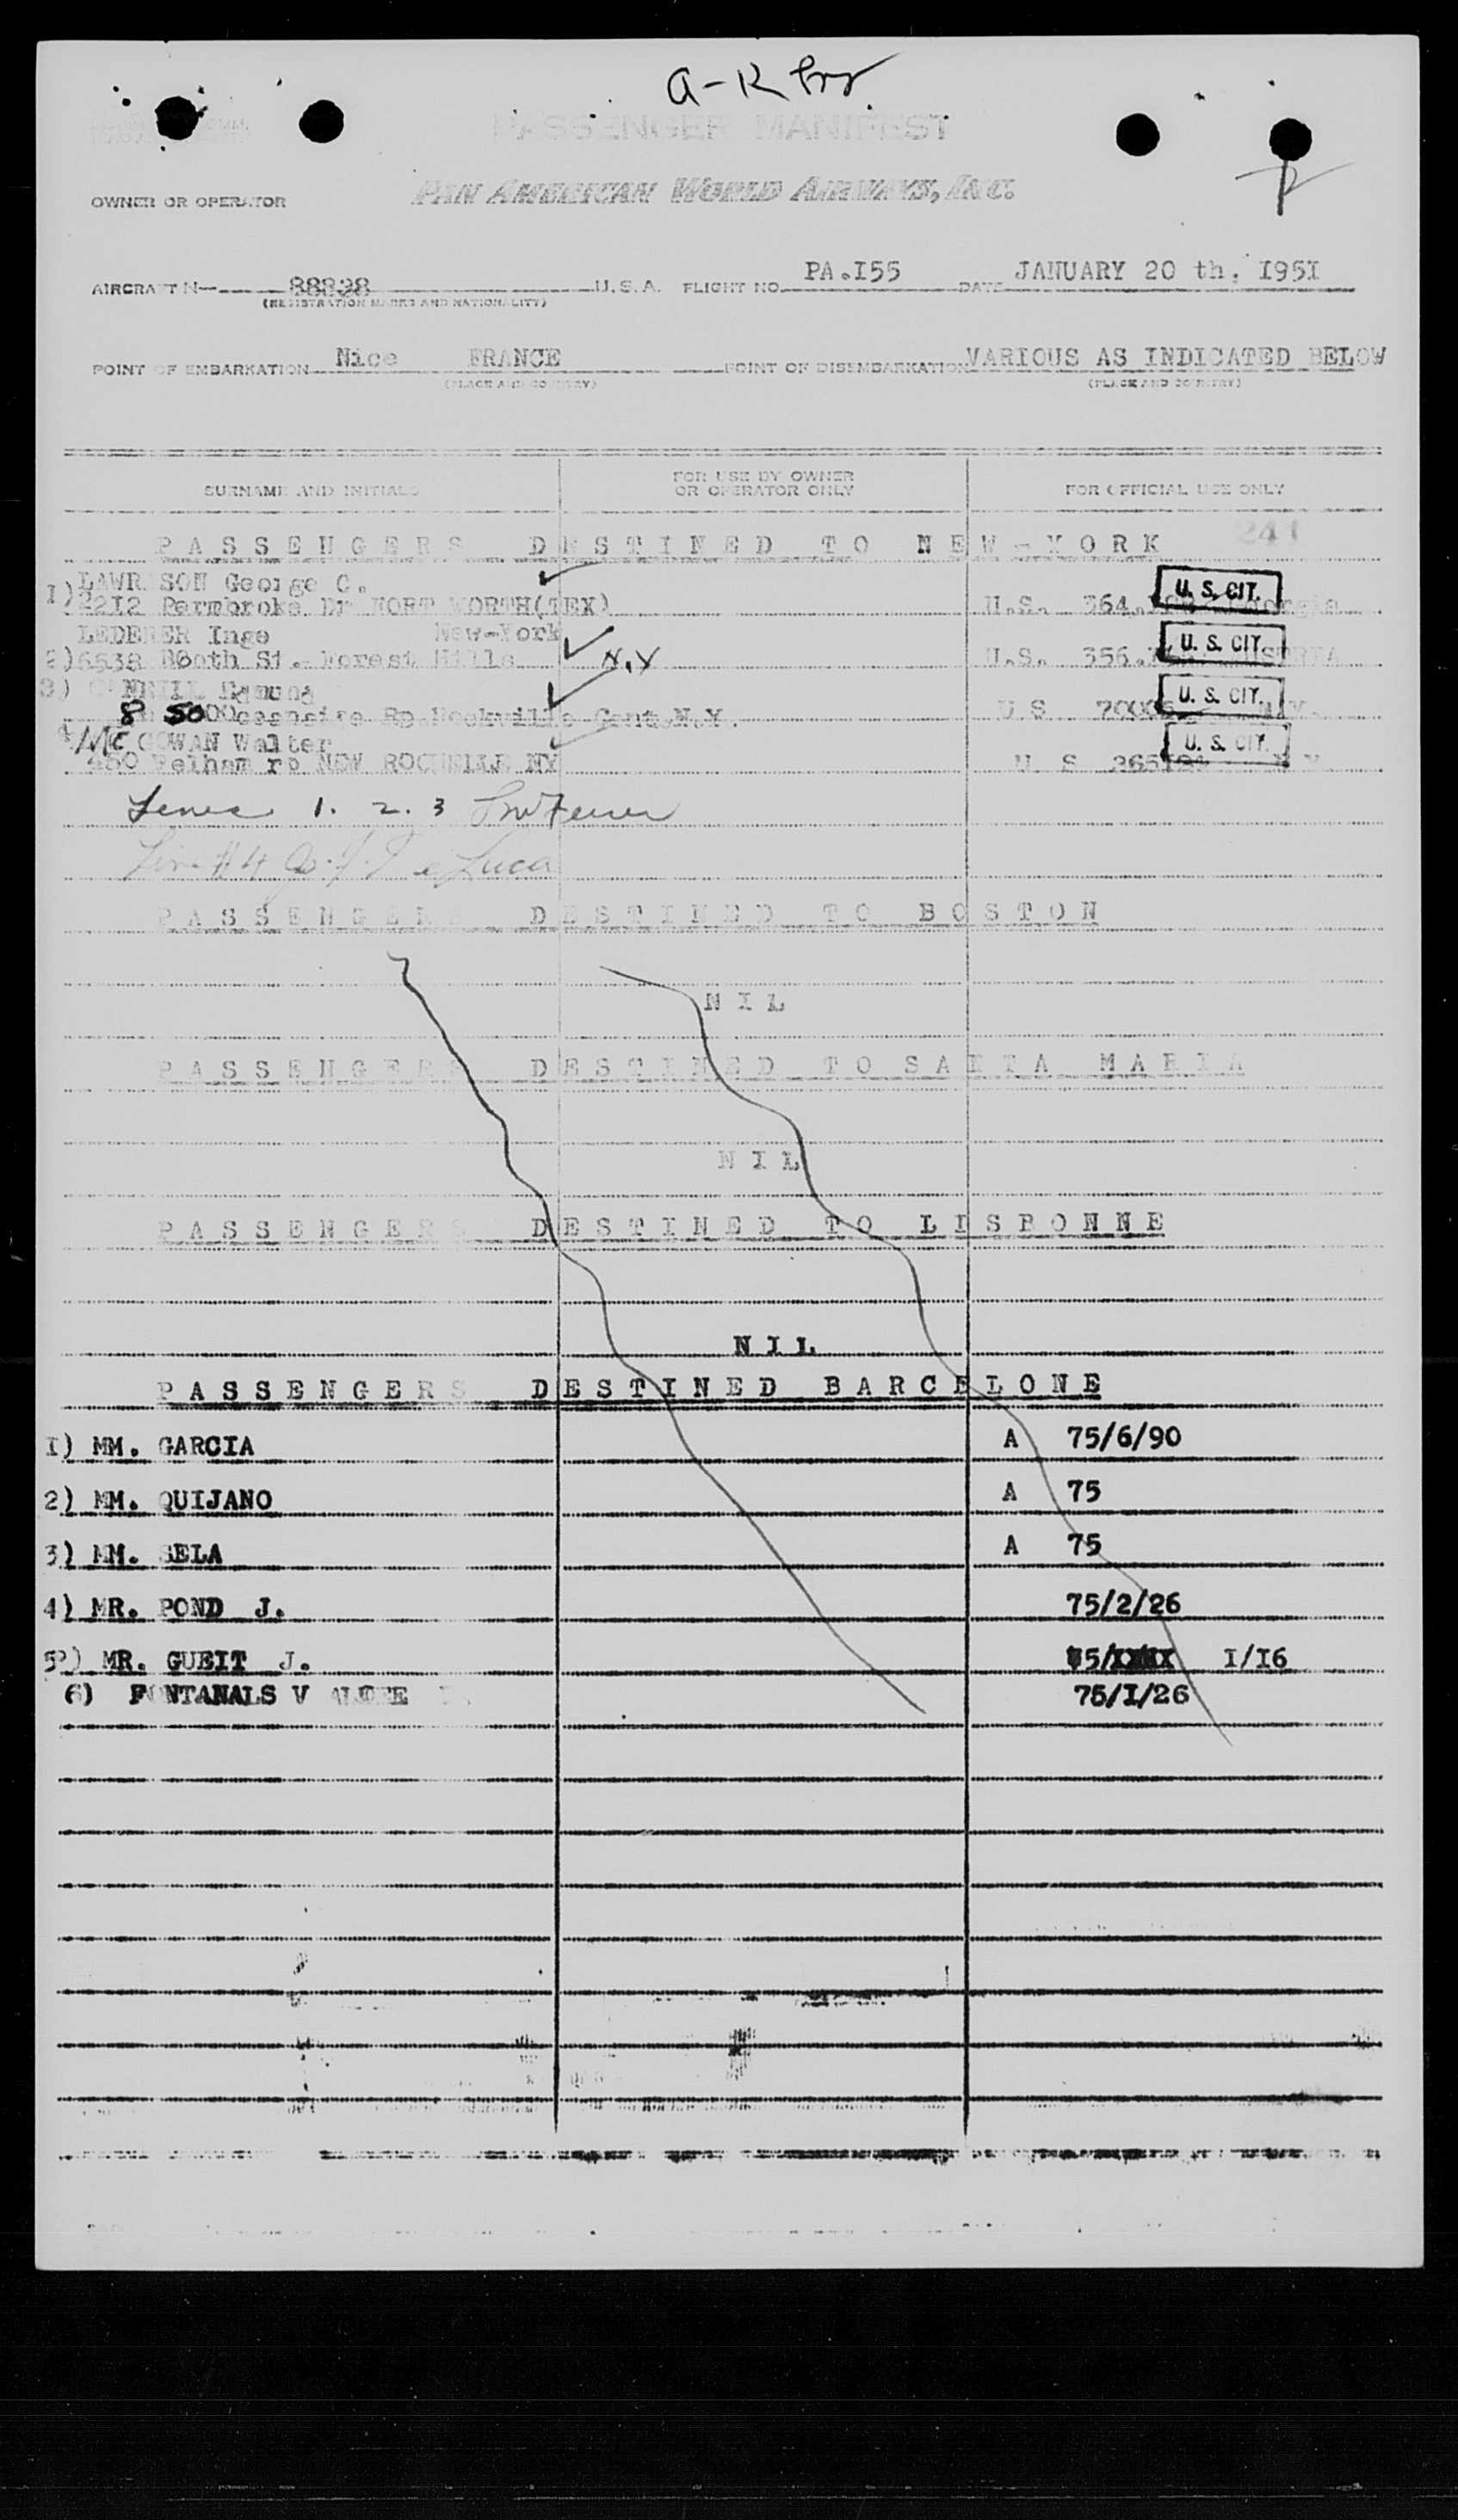 PASSENGER MANIFEST
OWNER OR OPERATOR PAN AMERICAN WORLD AIRWAYS, INC.
AIRCRAFT N- 88838 U.S.A. FLIGHT NO. PA.I55 DATE JANUARY 20 th. I95I
(REGISTRATION MARKS AND NATIONALITY)
POINT OF EMBARKATION Nice FRANCE POINT OF DISEMBARKATION VARIOUS AS INDICATED BELOW
(PLACE AND COUNTRY) (PLACE AND COUNTRY)
SURNAME AND INITIALS FOR USE BY OWNER OR OPERATOR ONLY FOR OFFICIAL USE ONLY
PASSENGERS DESTINED TO NEW-YORK 241
I) George C. U.S. CIT.
22I2 Dr FORT WORTH(TEX) U.S. 364.
LEDERER Inge New-York U.S. CIT.
2) 6538 Booth St. Forest Hills N.Y U.S. 356.
3) U.S. CIT.
8 50 Rockville Cent N.Y. U S
4 Mc GOWAN Walter U.S. CIT.
450 Pelham rd NEW ROCHELLE NY U S
1. 2. 3
Line #4 De Luca
PASSENGERS DESTINED TO BOSTON
NIL
PASSENGERS DESTINED TO SANTA MARIA
NIL
PASSENGERS DESTINED TO LISBONNE
NIL
PASSENGERS DESTINED BARCELONE
I) MM. GARCIA A 75/6/90
2) MM. QUIJANO A 75
3) MM. SELA A 75
4) MR. POND J. 75/2/26
5) MR. GUEIT J. I/I6
6) FONTANALS V 75/I/26